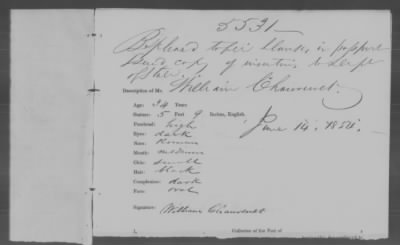 5531
Be pleased to fill blanks, in passport
Send copy of to Dept
of State.
Description of Mr. William Chauvenet.
Age: 34 Years
Stature: 5 Feet 9 Inches, English.
Forehead: high
June 14. 1854.
Eyes: dark
Nose: Roman
Mouth: medium
Chin: small
Hair: black
Complexion: dark
Face: oval
Signature: William Chauvenet
I, Collector of the Port of